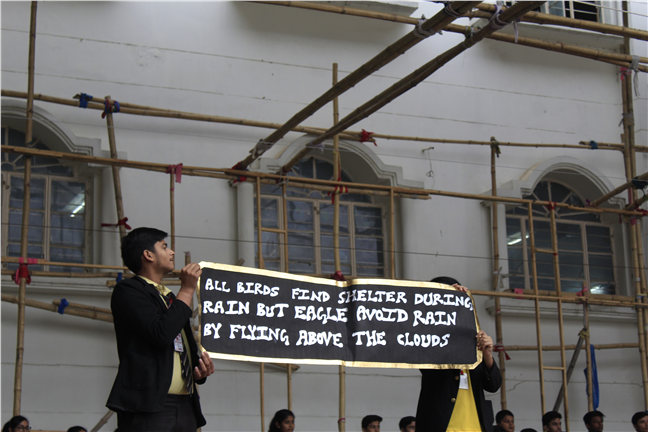 ALL BIRDS FIND SHELTER DURING
RAIN BUT EAGLE AVOID RAIN
BY FLYING ABOVE THE CLOUDS